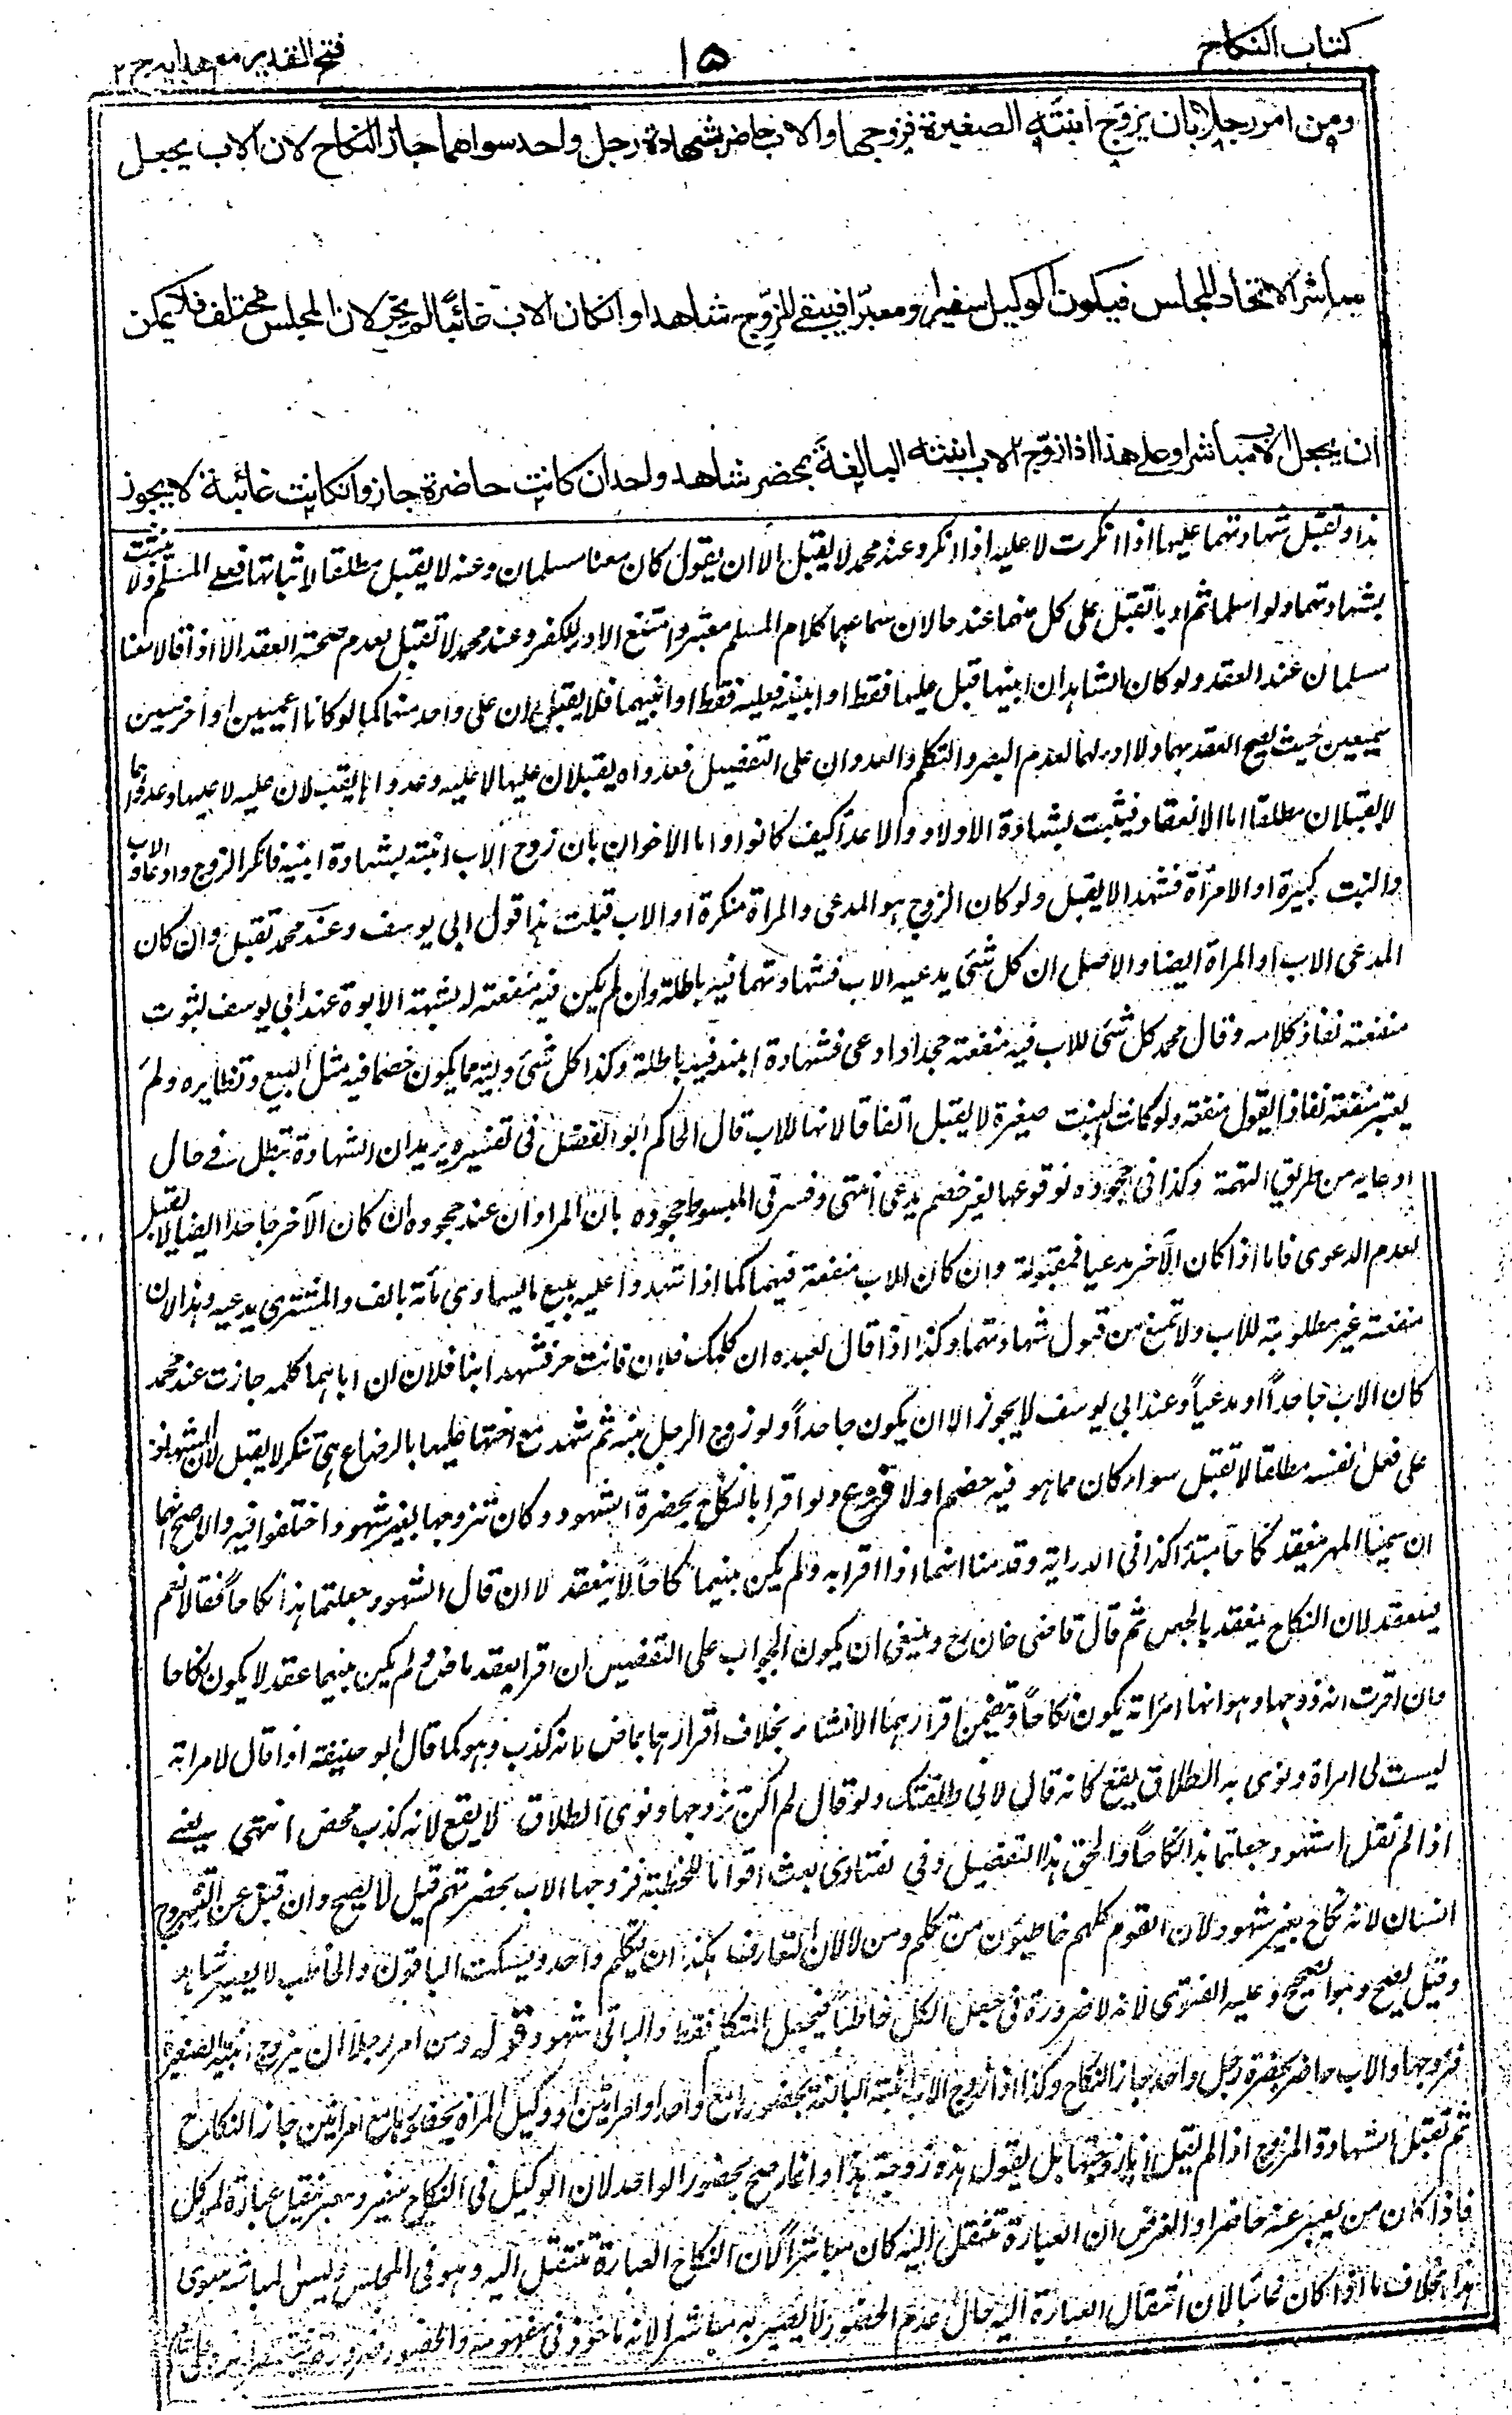 كتاب النكاح
١٥
فتح القدير مع هدايه ج ٢
ومن امر رجلا بان يزوج ابنته الصغيرة فزوجها والاب حاضر بشهادة رجل واحد سواهما جاز النكاح لان الاب يجعل
مباشرا لاتحاد المجلس فيكون الوكيل سفيرا ومعبرا فيبقى المزوج شاهدا وانكان الاب غائبا لم يجز لان المجلس مختلف فلا يمكن
ان يجعل الاب مباشرا وعلى هذا اذا زوج الاب ابنته البالغة بمحضر شاهد واحد ان كانت حاضرة جاز وانكانت غائبة لا يجوز
هذا وتقبل شهادتهما عليها اذا انكرت لا عليه اذا انكر وعند محمد لا يقبل الا ان يقول كان معنا مسلمان وعنه لا يقبل مطلقا لاثباتها فعل المسلم ولا يثبت
بشهادتهما ولو اسلما ثم اديا تقبل على كل منهما عندهما لان سماعهما كلام المسلم معتبر وامتنع الاداء للكفر وعند محمد لا تقبل لعدم صحة العقد الا اذا قالا معنا
مسلمان عند العقد ولو كان الشاهدان ابنيها قبل عليها فقط او ابنيه فعليه فقط او ابنيهما فلا يقبلان على واحد منهما كما لو كانا اعميين او اخرسين
سميعين حيث يصح العقد بهما ولا اداء لهما لعدم البصر والتكلم والعدوان على التفصيل فعدواه يقبلان عليها لا عليه وعدواها يقبلان عليه لا عليها وعدواهما
لا يقبلان مطلقا اما الانعقاد فيثبت بشهادة الاولاد والاعداء كيف كانوا واما الاخوان بان زوج الاب ابنته بشهادة ابنيه فانكر الزوج وادعاه الاب
والبنت كبيرة او الامرأة فشهدا لا يقبل ولو كان الزوج هو المدعي والمراة منكرة او الاب قبلت هذا قول ابي يوسف وعند محمد تقبل وان كان
المدعي الاب او المراة ايضا والاصل ان كل شئ يدعيه الاب فشهادتهما فيه باطلة وان لم يكن فيه منفعة له لشبهة الابوة عند ابي يوسف لثبوت
منفعة نفاذ كلامه وقال محمد كل شئ للاب فيه منفعة جحد او ادعى فشهادة ابنه فيه باطلة وكذا كل شئ وليه مما يكون خصما فيه مثل البيع ونظايره ولم
يعتبر منفعة نفاذ القول منفعة ولو كانت البنت صغيرة لا يقبل اتفاقا لانها للاب قال الحاكم ابو الفضل في تفسيره يريد ان الشهادة تبطل في حال
ادعايه من طريق التهمة وكذا في جحوده لوقوعها لغير خصم يدعي انتهى وفسر في المبسوط جحوده بان المراد ان عند جحوده ان كان الآخر جاحدا ايضا لا يقبل
لعدم الدعوى فاما اذا كان الآخر مدعيا فمقبولة وان كان للاب منفعة فيهما كما اذا شهدوا عليه ببيع ما يساوي مأة بالف والمشتري يدعيه وهذا لان
منفعة غير مطلوبة للاب ولا تمنع من قبول شهادتهما وكذا اذا قال لعبده ان كلمك فلان فانت حر فشهد ابنا فلان ان اباهما كلمه جازت عند محمد
كان الاب جاحدا او مدعيا وعند ابي يوسف لا يجوز الا ان يكون جاحدا ولو زوج الرجل بنته ثم شهد مع اختها عليها بالرضاع هي تنكر لا يقبل لان الشهادة
على فعل نفسه مطلقا لا تقبل سواء كان مما هو فيه خصم او لا فروع ولو اقرا بالنكاح بحضرة الشهود وكان تزوجها بغير شهود اختلفوا فيه والاصح انهما
ان سميا المهر ينعقد نكاحا مبتدأ كذا في الدراية وقدمنا انهما اذا اقرا به ولم يكن بينهما نكاحا لا ينعقد الا ان قال الشهود جعلتما هذا نكاحا فقالا نعم
ينعقد لان النكاح ينعقد بالجعل ثم قال قاضي خان رح وينبغي ان يكون الجواب على التفصيل ان اقرا بعقد ماض ولم يكن بينهما عقد لا يكون نكاحا
وان اقرت انه زوجها وهو انها امرأته يكون نكاحا ويتضمن اقرارهما الانشاء بخلاف اقرارهما بماض لانه كذب وهو كما قال ابو حنيفة اذا قال لامراته
ليست لي امراة ونوى به الطلاق يقع كانه قال لاني طلقتك ولو قال لم اكن تزوجها ونوى الطلاق لا يقع لانه كذب محض انتهى يعني
اذا لم تقل الشهود جعلتما هذا نكاحا والحق هذا التفصيل وفي الفتاوى بعث اقواما للخطبة فزوجها الاب بحضرتهم قيل لا يصح وان قبل عن الزوج
انسان لانه نكاح بغير شهود لان القوم كلهم خاطبون من تكلم ومن لا لان التعارف هكذا ان يتكلم واحد ويسكت الباقون والخاطب لا يصير شاهدا
وقيل يصح وهو الصحيح وعليه الفتوى لانه لا ضرورة في جعل الكل خاطبا فيجعل المتكلم فقط والباقي شهود قوله ومن امر رجلا ان يزوج ابنته الصغيرة
فزوجها والاب حاضر بحضرة رجل واحد جاز النكاح وكذا اذا زوج الاب ابنته البالغة بحضورها مع واحد او امرأتين او وكيل المرأة بحضورها مع امرأتين جاز النكاح
ثم تقبل شهادة المزوج اذا لم يقل انا زوجتها بل يقول هذه زوجة هذا وانما صح بحضور الواحد لان الوكيل في النكاح سفير ومعبر ينقل عبارة الموكل
فاذا كان من يعبر عنه حاضرا والفرض ان العبارة تنتقل اليه كان مباشرا لان النكاح العبارة تنتقل اليه وهو في المجلس وليس المباشر سوى
هذا بخلاف ما اذا كان غائبا لان انتقال العبارة اليه حال عدم الحضور لا يصير به مباشرا لانه ماخوذ في مفهومه والحضور